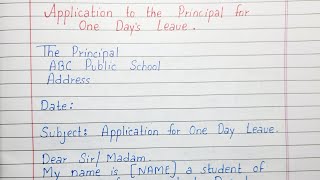 Application to the Principal for
One Day's Leave.
The Principal
ABC Public School
Address
Date:
Subject: Application for One Day Leave.
Dear Sir/Madam.
My name is [NAME] a student of